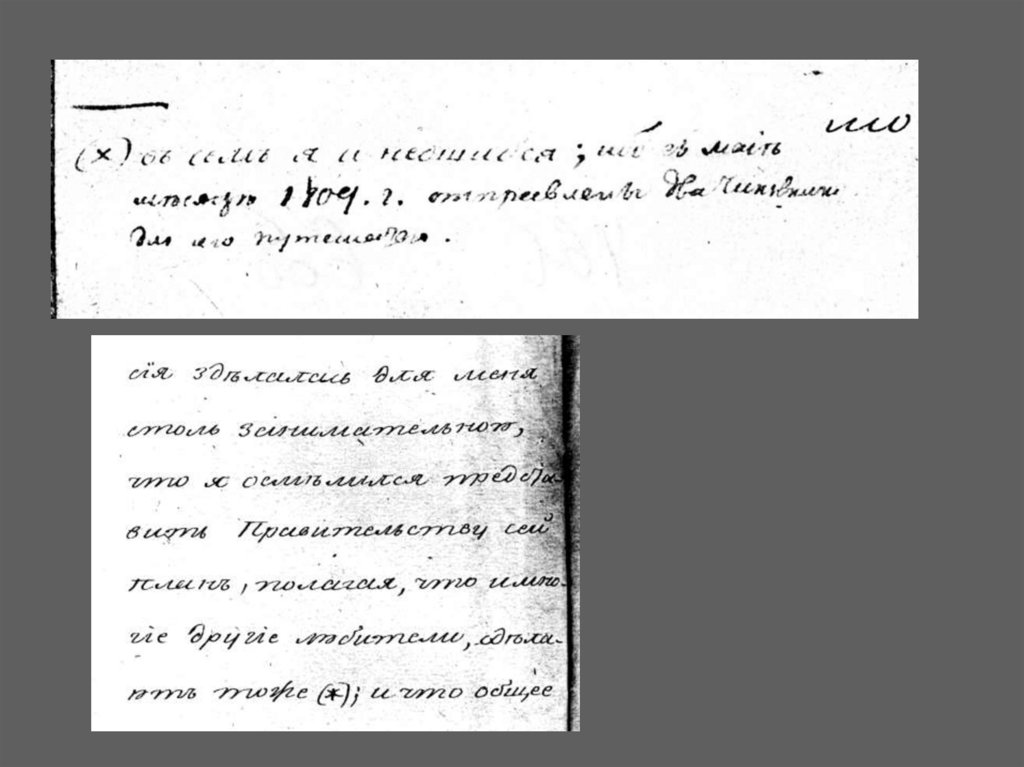 что
(*) въ семъ я и неошибся; ибо въ маіѣ
мѣсяцѣ 1809. г. отправлены два чиновника
для его путешествія.
сія здѣлалась для меня
столь занимательною,
что я осмѣлился предста-
вить Правительству сей
планъ, полагая, что и мно-
гіе другіе любители, сдѣла-
ютъ тоже (*); и что общее